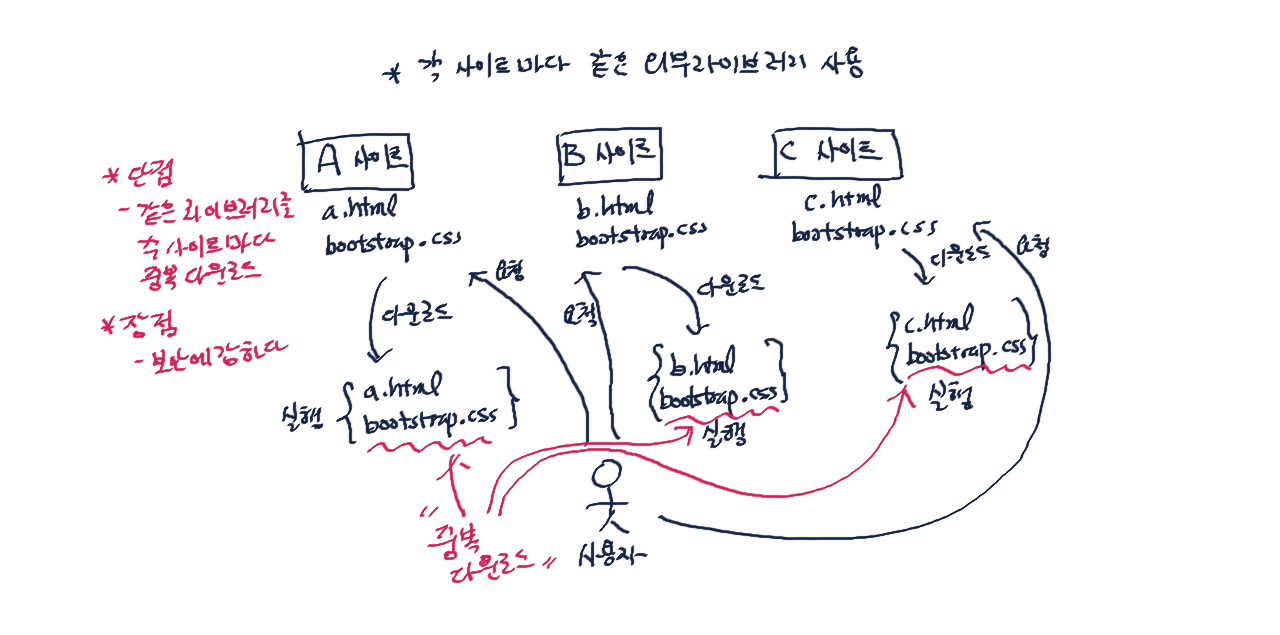 * 각 사이트마다 같은 외부라이브러리 사용
* 단점
- 같은 라이브러리를
각 사이트마다
중복 다운로드
* 장점
- 보안에 강하다
A 사이트
a.html
bootstrap.css
요청
다운로드
실행
a.html
bootstrap.css
B 사이트
b.html
bootstrap.css
요청
다운로드
b.html
bootstrap.css
실행
C 사이트
c.html
bootstrap.css
다운로드
요청
c.html
bootstrap.css
실행
"중복
다운로드"
사용자